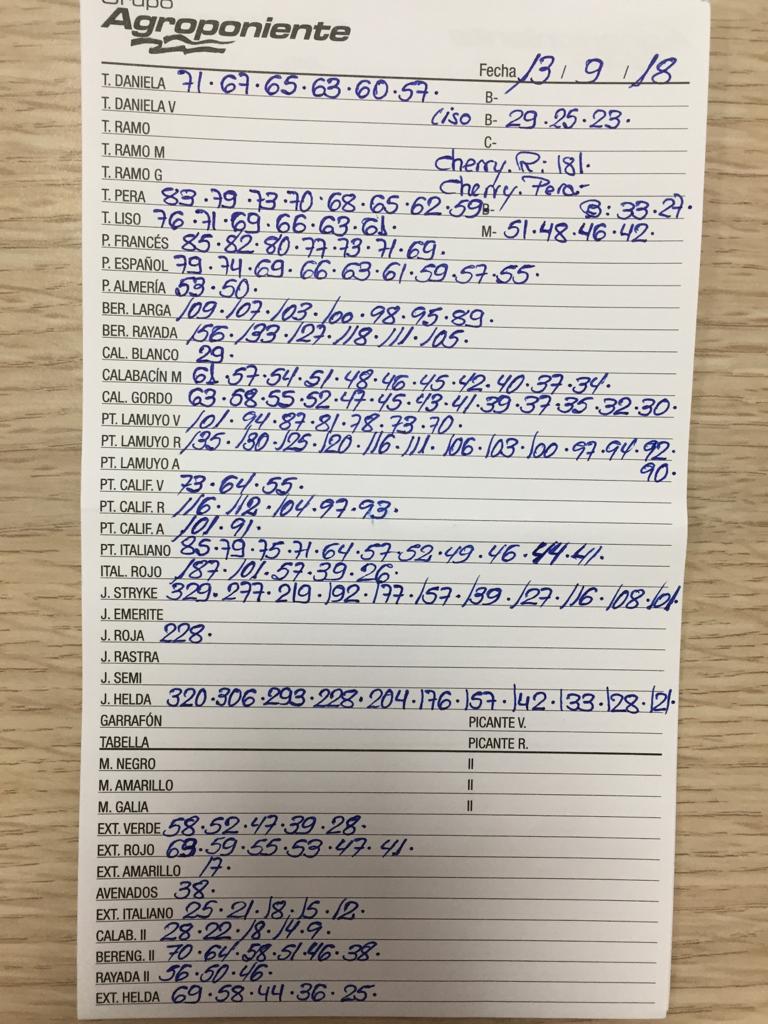 Grupo
Agroponiente
Fecha 13 / 9 / 18
T. DANIELA 71.67.65.63.60.57. B-
T. DANIELA V Liso B- 29.25.23.
T. RAMO C-
T. RAMO M Cherry. R: 181.
T. RAMO G Cherry. Pera-
T. PERA 83.79.73.70.68.65.62.59 B- B: 33.27.
T. LISO 76.71.69.66.63.61. M- 51.48.46.42.
P. FRANCÉS 85.82.80.77.73.71.69.
P. ESPAÑOL 79.74.69.66.63.61.59.57.55.
P. ALMERÍA 53.50.
BER. LARGA 109.107.103.100.98.95.89.
BER. RAYADA 156.133.127.118.111.105.
CAL. BLANCO 29.
CALABACÍN M 61.57.54.51.48.46.45.42.40.37.34.
CAL. GORDO 63.58.55.52.47.45.43.41.39.37.35.32.30.
PT. LAMUYO V 101.94.87.81.78.73.70.
PT. LAMUYO R 135.130.125.120.116.111.106.103.100.97.94.92.
PT. LAMUYO A 90.
PT. CALIF. V 73.64.55.
PT. CALIF. R 116.112.104.97.93.
PT. CALIF. A 101.91.
PT. ITALIANO 85.79.75.71.64.57.52.49.46.44.41.
ITAL. ROJO 187.101.57.39.26.
J. STRYKE 329.277.219.192.177.157.139.127.116.108.101.
J. EMERITE
J. ROJA 228.
J. RASTRA
J. SEMI
J. HELDA 320.306.293.228.204.176.157.142.133.128.121.
GARRAFÓN PICANTE V.
TABELLA PICANTE R.
M. NEGRO II
M. AMARILLO II
M. GALIA II
EXT. VERDE 58.52.47.39.28.
EXT. ROJO 69.59.55.53.47.41.
EXT. AMARILLO 17.
AVENADOS 38.
EXT. ITALIANO 25.21.18.15.12.
CALAB. II 28.22.18.14.9.
BERENG. II 70.64.58.51.46.38.
RAYADA II 56.50.46.
EXT. HELDA 69.58.44.36.25.